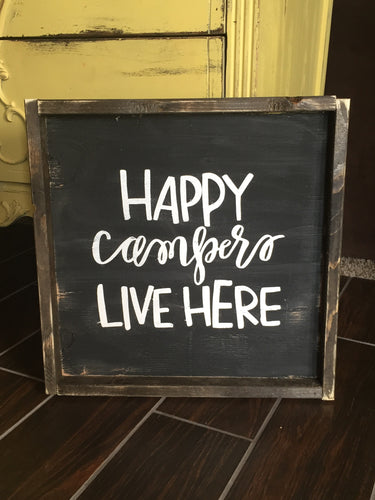 HAPPY
campers
LIVE HERE